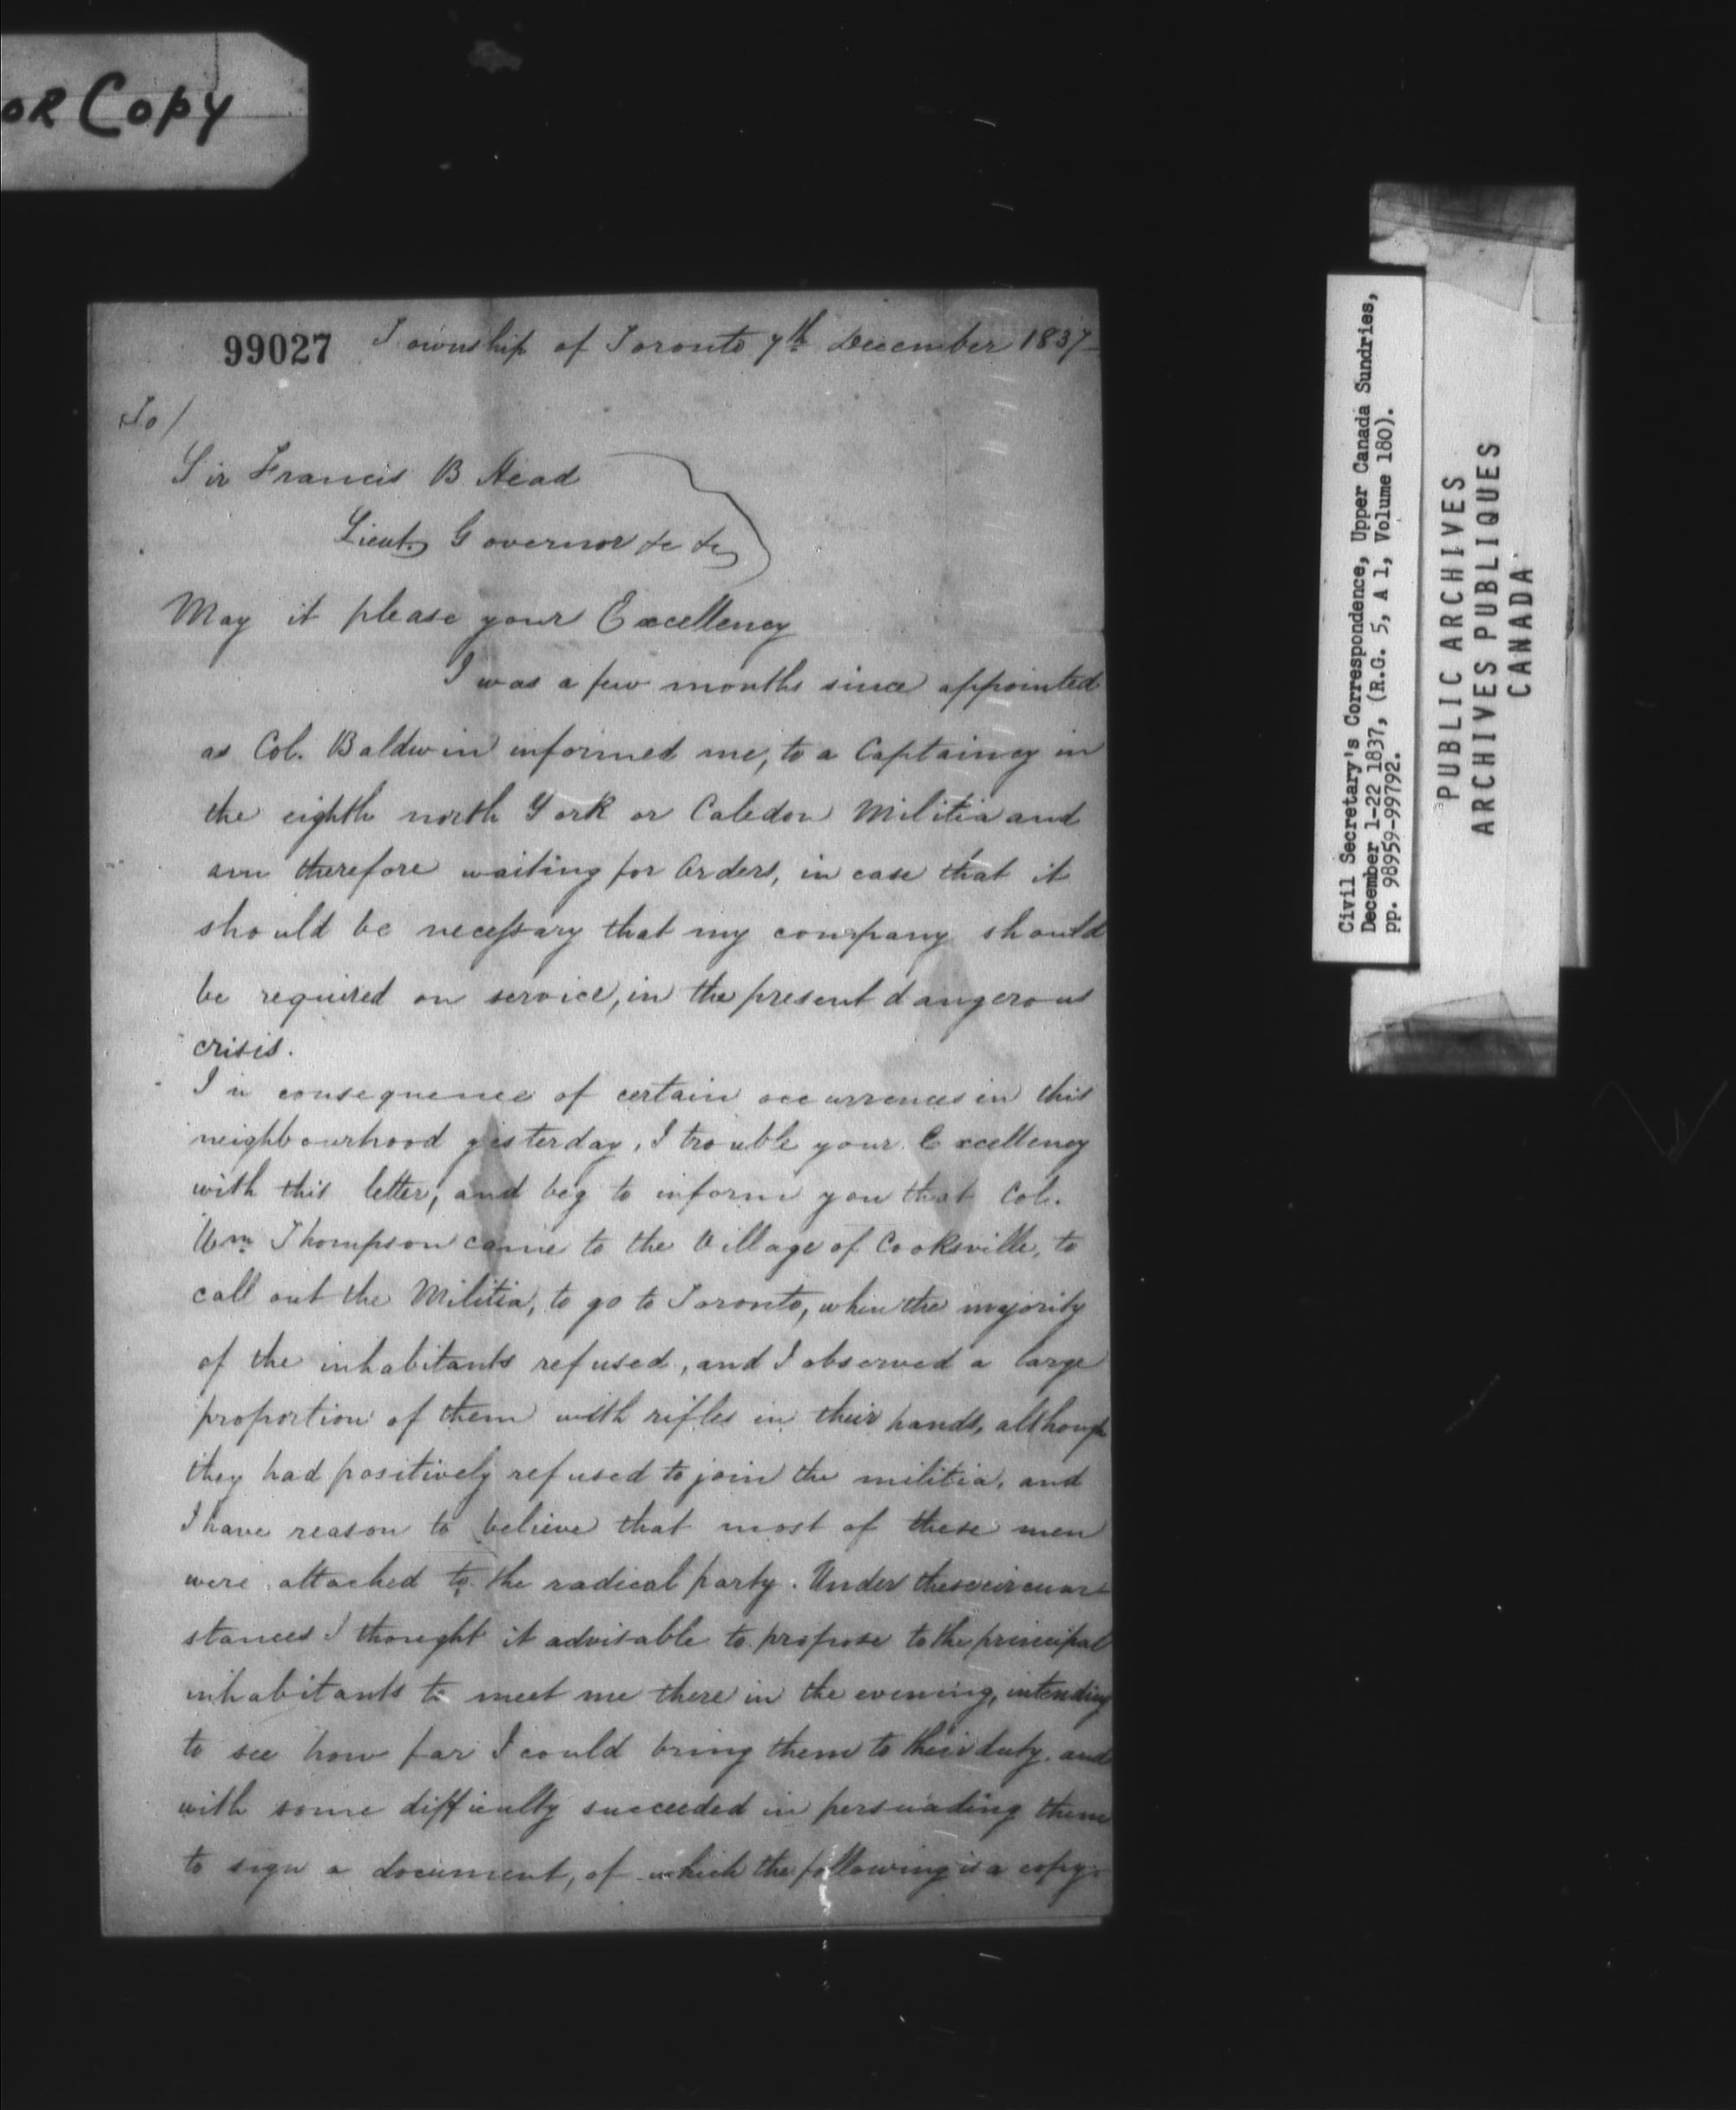 OR Copy
99027 Township of Toronto 7th December 1837
To/
Sir Francis B Head
Lieut. Governor &c &c
May it please your Excellency
I was a few months since appointed
as Col. Baldwin informed me, to a Captaincy in
the eighth north York or Caledon Militia and
am therefore waiting for Orders, in case that it
should be necessary that my company should
be required on service, in the present dangerous
crisis.
In consequence of certain occurrences in this
neighbourhood yesterday, I trouble your Excellency
with this letter, and beg to inform you that Col.
Wm Thompson came to the Village of Cooksville, to
call out the Militia, to go to Toronto, when the majority
of the inhabitants refused, and I observed a large
proportion of them with rifles in their hands, although
they had positively refused to join the militia, and
I have reason to believe that most of these men
were attached to the radical party. Under these circum
stances I thought it advisable to propose to the principal
inhabitants to meet me there in the evening, intending
to see how far I could bring them to their duty, and
with some difficulty succeeded in persuading them
to sign a document, of which the following is a copy.
Civil Secretary's Correspondence, Upper Canada Sundries,
December 1-22 1837, (R.G. 5, A 1, Volume 180).
pp. 98959-99792.
PUBLIC ARCHIVES
ARCHIVES PUBLIQUES
CANADA